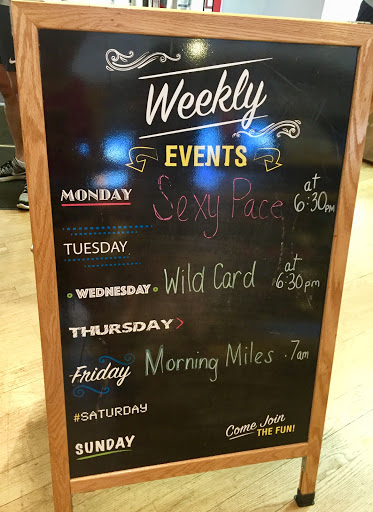 Weekly
EVENTS
MONDAY Sexy Pace at 6:30PM
TUESDAY
WEDNESDAY Wild Card at 6:30pm
THURSDAY
Friday Morning Miles . 7am
#SATURDAY
SUNDAY
Come Join
THE FUN!